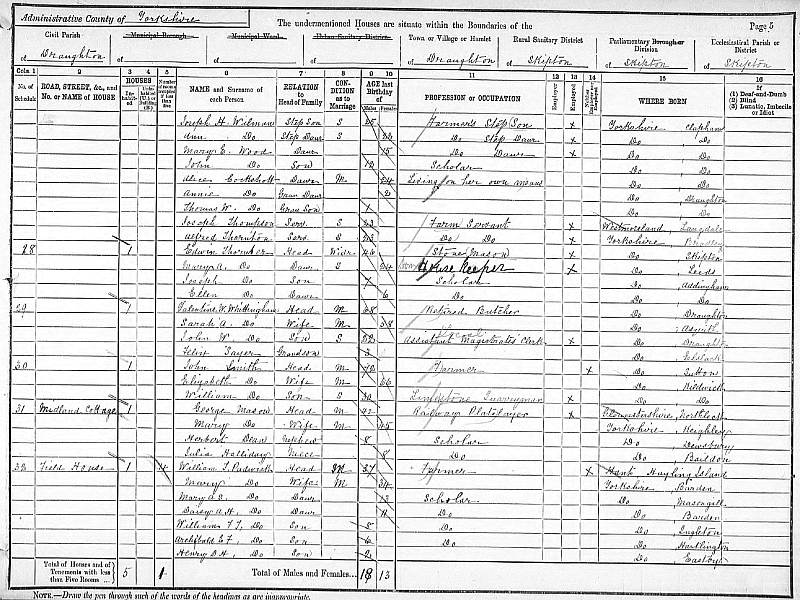 Administrative County of Yorkshire
The undermentioned Houses are situate within the Boundaries of the
Page 5
Civil Parish
Municipal Borough
Municipal Ward
Urban Sanitary District
Town or Village or Hamlet
Rural Sanitary District
Parliamentary Borough or Division
Ecclesiastical Parish or District
of Draughton
of
of
of
of Draughton
of Skipton
of Skipton
of Skipton
Cols 1 2 3 4 5 6 7 8 9 10 11 12 13 14 15 16
No. of Schedule
ROAD, STREET, &c., and No. or NAME of HOUSE
HOUSES
NAME and Surname of each Person
RELATION to Head of Family
CONDITION as to Marriage
AGE last Birthday of
Males Females
PROFESSION or OCCUPATION
Employer
Employed
Neither Employer nor Employed
WHERE BORN
If
(1) Deaf-and-Dumb
(2) Blind
(3) Lunatic, Imbecile or Idiot
Joseph H. Wilman Step Son S 25 Farmer's Step Son x Yorkshire Clapham
Ann Do Step Daur S Do Step Daur x Do Do
Mary E. Wood Daur 15 Do Daur x Do Do
John Do Son 12 Scholar Do Do
Alice Cockshott Daur M 24 Living on her own means Do Do
Annie Do Gran Daur 2 Do Draughton
Thomas W. Do Gran Son 1 Do Do
Joseph Thompson Serv S 23 Farm Servant x Westmoreland Langdale
Alfred Thornton Serv S Do Do x Yorkshire
28 1 Edwin Thornber Head Widr 46 Stone Mason x Do Skipton
Mary A. Do Daur S 24 House Keeper x Do Leeds
Joseph Do Son Scholar Do Addingham
Ellen Do Daur 6 Do Do Do
29 1 Valentine W. Whittingham Head M 48 Retired Butcher Do Draughton
Sarah A. Do Wife M 58 Do Askwith
John W. Do Son S 22 Assistant Magistrates' Clerk x Do Draughton
Grandson 3 Do
30 1 John Smith Head M 72 Farmer x Do Sutton
Elizabeth Do Wife M 66 Do Kildwick
William Do Son S 30 Limestone Quarryman x Do Do
31 Midland Cottage 1 George Mason Head M 42 Railway Platelayer x Gloucestershire, Northleach
Mary Do Wife M 45 Yorkshire Keighley
Herbert Dean Nephew 8 Scholar Do Dewsbury
Julia Halliday Niece 8 Do Do Baildon
32 Field House 1 William T. Pudworth Head M 37 Farmer x Hants Hayling Island
Mary Do Wife M 34 Yorkshire, Barden
Mary A. S. Do Daur 13 Scholar Do
Daisy A. H. Do Daur 11 Do Do Barden
William T. J. Do Son 8 Do Do Ingleton
Archibald E. F. Do Son 6 Do Do Hartlington
Henry D. H. Do Son 2 Do Eastby
Total of Houses and of Tenements with less than Five Rooms 5 1 Total of Males and Females... 18 13
NOTE.—Draw the pen through such of the words of the headings as are inappropriate.